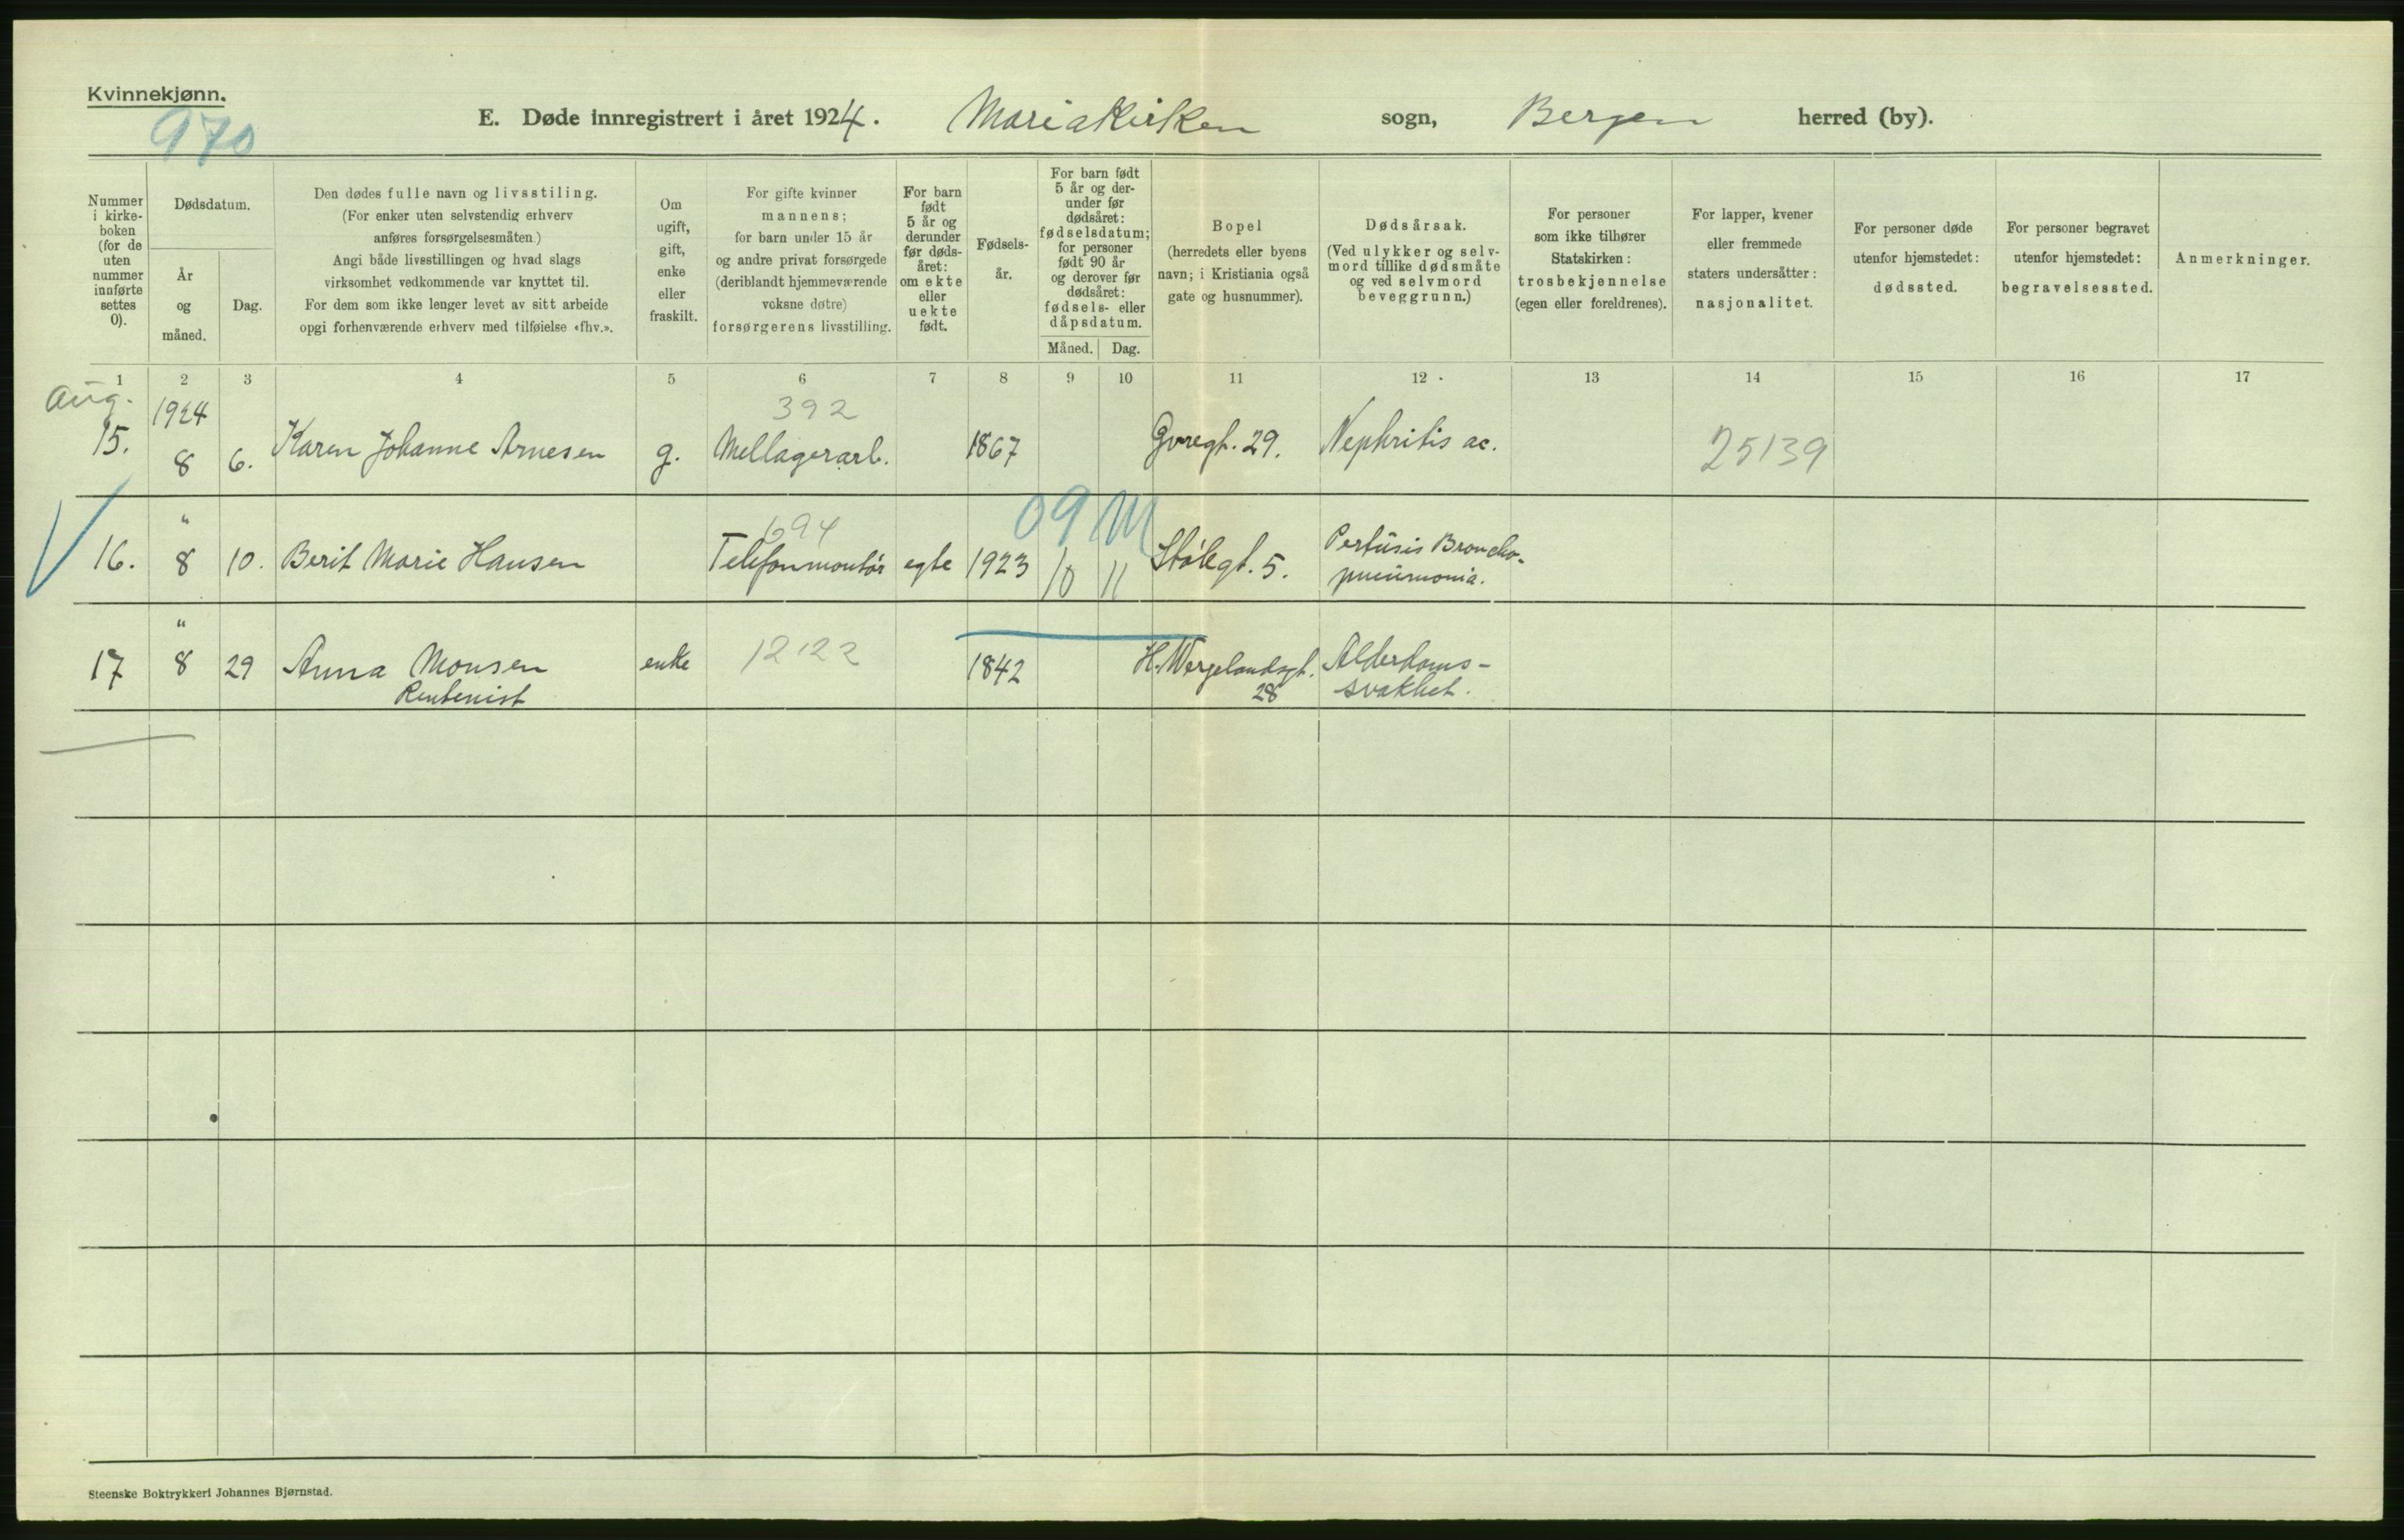 Kvinnekjønn.
970
E. Døde innregistrert i året 1924. Mariakirken sogn, Bergen herred (by).
Nummer i kirke- boken (for de uten nummer innførte settes 0).
Dødsdatum.
År og måned.
Dag.
Den dødes fulle navn og livsstiling.
(For enker uten selvstendig erhverv
anføres forsørgelsesmåten.)
Angi både livsstillingen og hvad slags
virksomhet vedkommende var knyttet til.
For dem som ikke lenger levet av sitt arbeide
opgi forhenværende erhverv med tilføielse «fhv.».
Om
ugift,
gift,
enke
eller
fraskilt.
For gifte kvinner
mannens;
for barn under 15 år
og andre privat forsørgede
(deriblandt hjemmeværende
voksne døtre)
forsørgerens livsstilling.
For barn
født
5 år og
derunder
før døds-
året:
om ekte
eller
uekte
født.
Fødsels-
år.
For barn født
5 år og der-
under før
dødsåret:
fødselsdatum;
for personer
født 90 år
og derover før
dødsåret:
fødsels- eller
dåpsdatum.
Måned. Dag.
Bopel
(herredets eller byens
navn; i Kristiania også
gate og husnummer).
Dødsårsak.
(Ved ulykker og selv-
mord tillike dødsmåte
og ved selvmord
beveggrunn.)
For personer
som ikke tilhører
Statskirken:
trosbekjennelse
(egen eller foreldrenes).
For lapper, kvener
eller fremmede
staters undersåtter:
nasjonalitet.
For personer døde
utenfor hjemstedet:
dødssted.
For personer begravet
utenfor hjemstedet:
begravelsessted.
Anmerkninger.
1 2 3 4 5 6 7 8 9 10 11 12 13 14 15 16 17
Aug.
1924 392
15. 8 6. Karen Johanne Arnesen g. Mellagerarb. 1867 Øvregt. 29. Nephritis ac. 25139
" 1094 09 M
16. 8 10. Berit Marie Hansen Telefonmontør egte 1923 10 11 Stølegt. 5. Pertusis Broncho-
pneumonia.
"
17 8 29 Anna Monsen enke 12122 1842 H. Wergelandsgt. Alderdoms-
Rentenist 28 svakhet.
Steenske Boktrykkeri Johannes Bjørnstad.